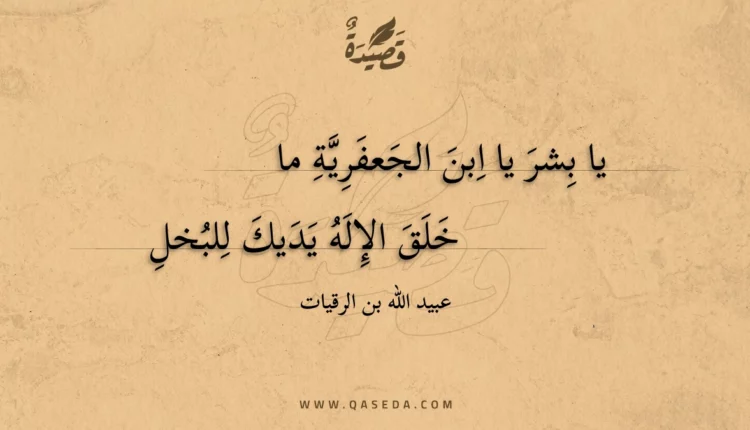 قَصِيدَةٌ
يا بِشرَ يا اِبنَ الجَعفَرِيَّةِ ما
خَلَقَ الإِلَهُ يَدَيكَ لِلبُخلِ
عبيد الله بن الرقيات
WWW.QASEDA.COM